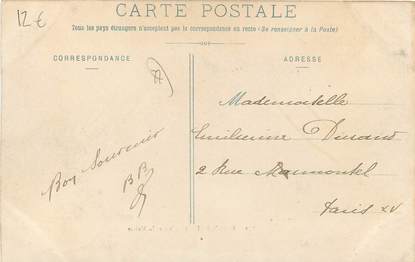 12 €
CARTE POSTALE
Tous les pays étrangers n'acceptent pas la correspondance au recto (Se renseigner à la Poste)
CORRESPONDANCE
ADRESSE
Bon Souvenir
BB
Mademoiselle
Emilienne Durand
2 Rue Marmontel
Paris XV